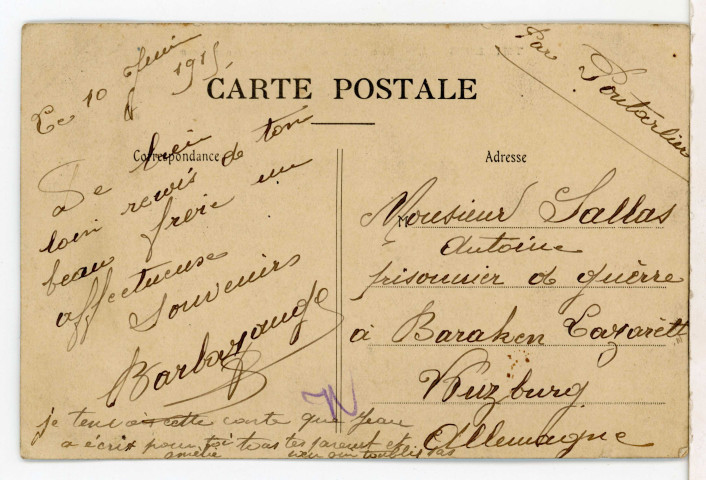 Le 10 Juin
1915
Par Pontarlier
CARTE POSTALE
Correspondance
Adresse
De bien
loin reçois de ton
beau frère un
affectueuse
Souvenirs
Barbazange
M
Monsieur Sallas
Antoine
prisonnier de guerre
à Baraken Lazarett
Wuzburg
Allemagne
je tenvoi cette carte que Jean
a écrit pour toi tous tes parent et
amelie